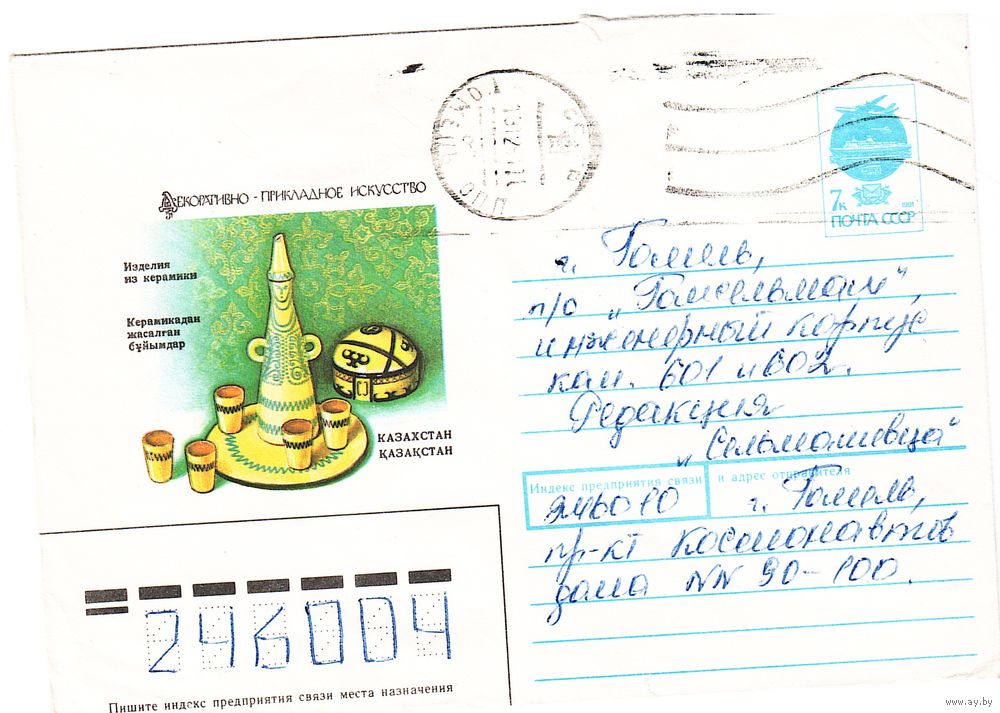 Декоративно - прикладное искусство
Изделия
из керамики
Керамикадан
жасалған
бұйымдар
КАЗАХСТАН
ҚАЗАҚСТАН
7к 1991
ПОЧТА СССР
г. Гомель,
п/о „Гомсельмаш“,
инженерный корпус
ком. 601 и 602.
Редакция
„Сельмашевца“
Индекс предприятия связи и адрес отправителя
246010 г. Гомель,
пр-кт Космонавтов
дома NN 90-100.
246004
Пишите индекс предприятия связи места назначения
www.ay.by